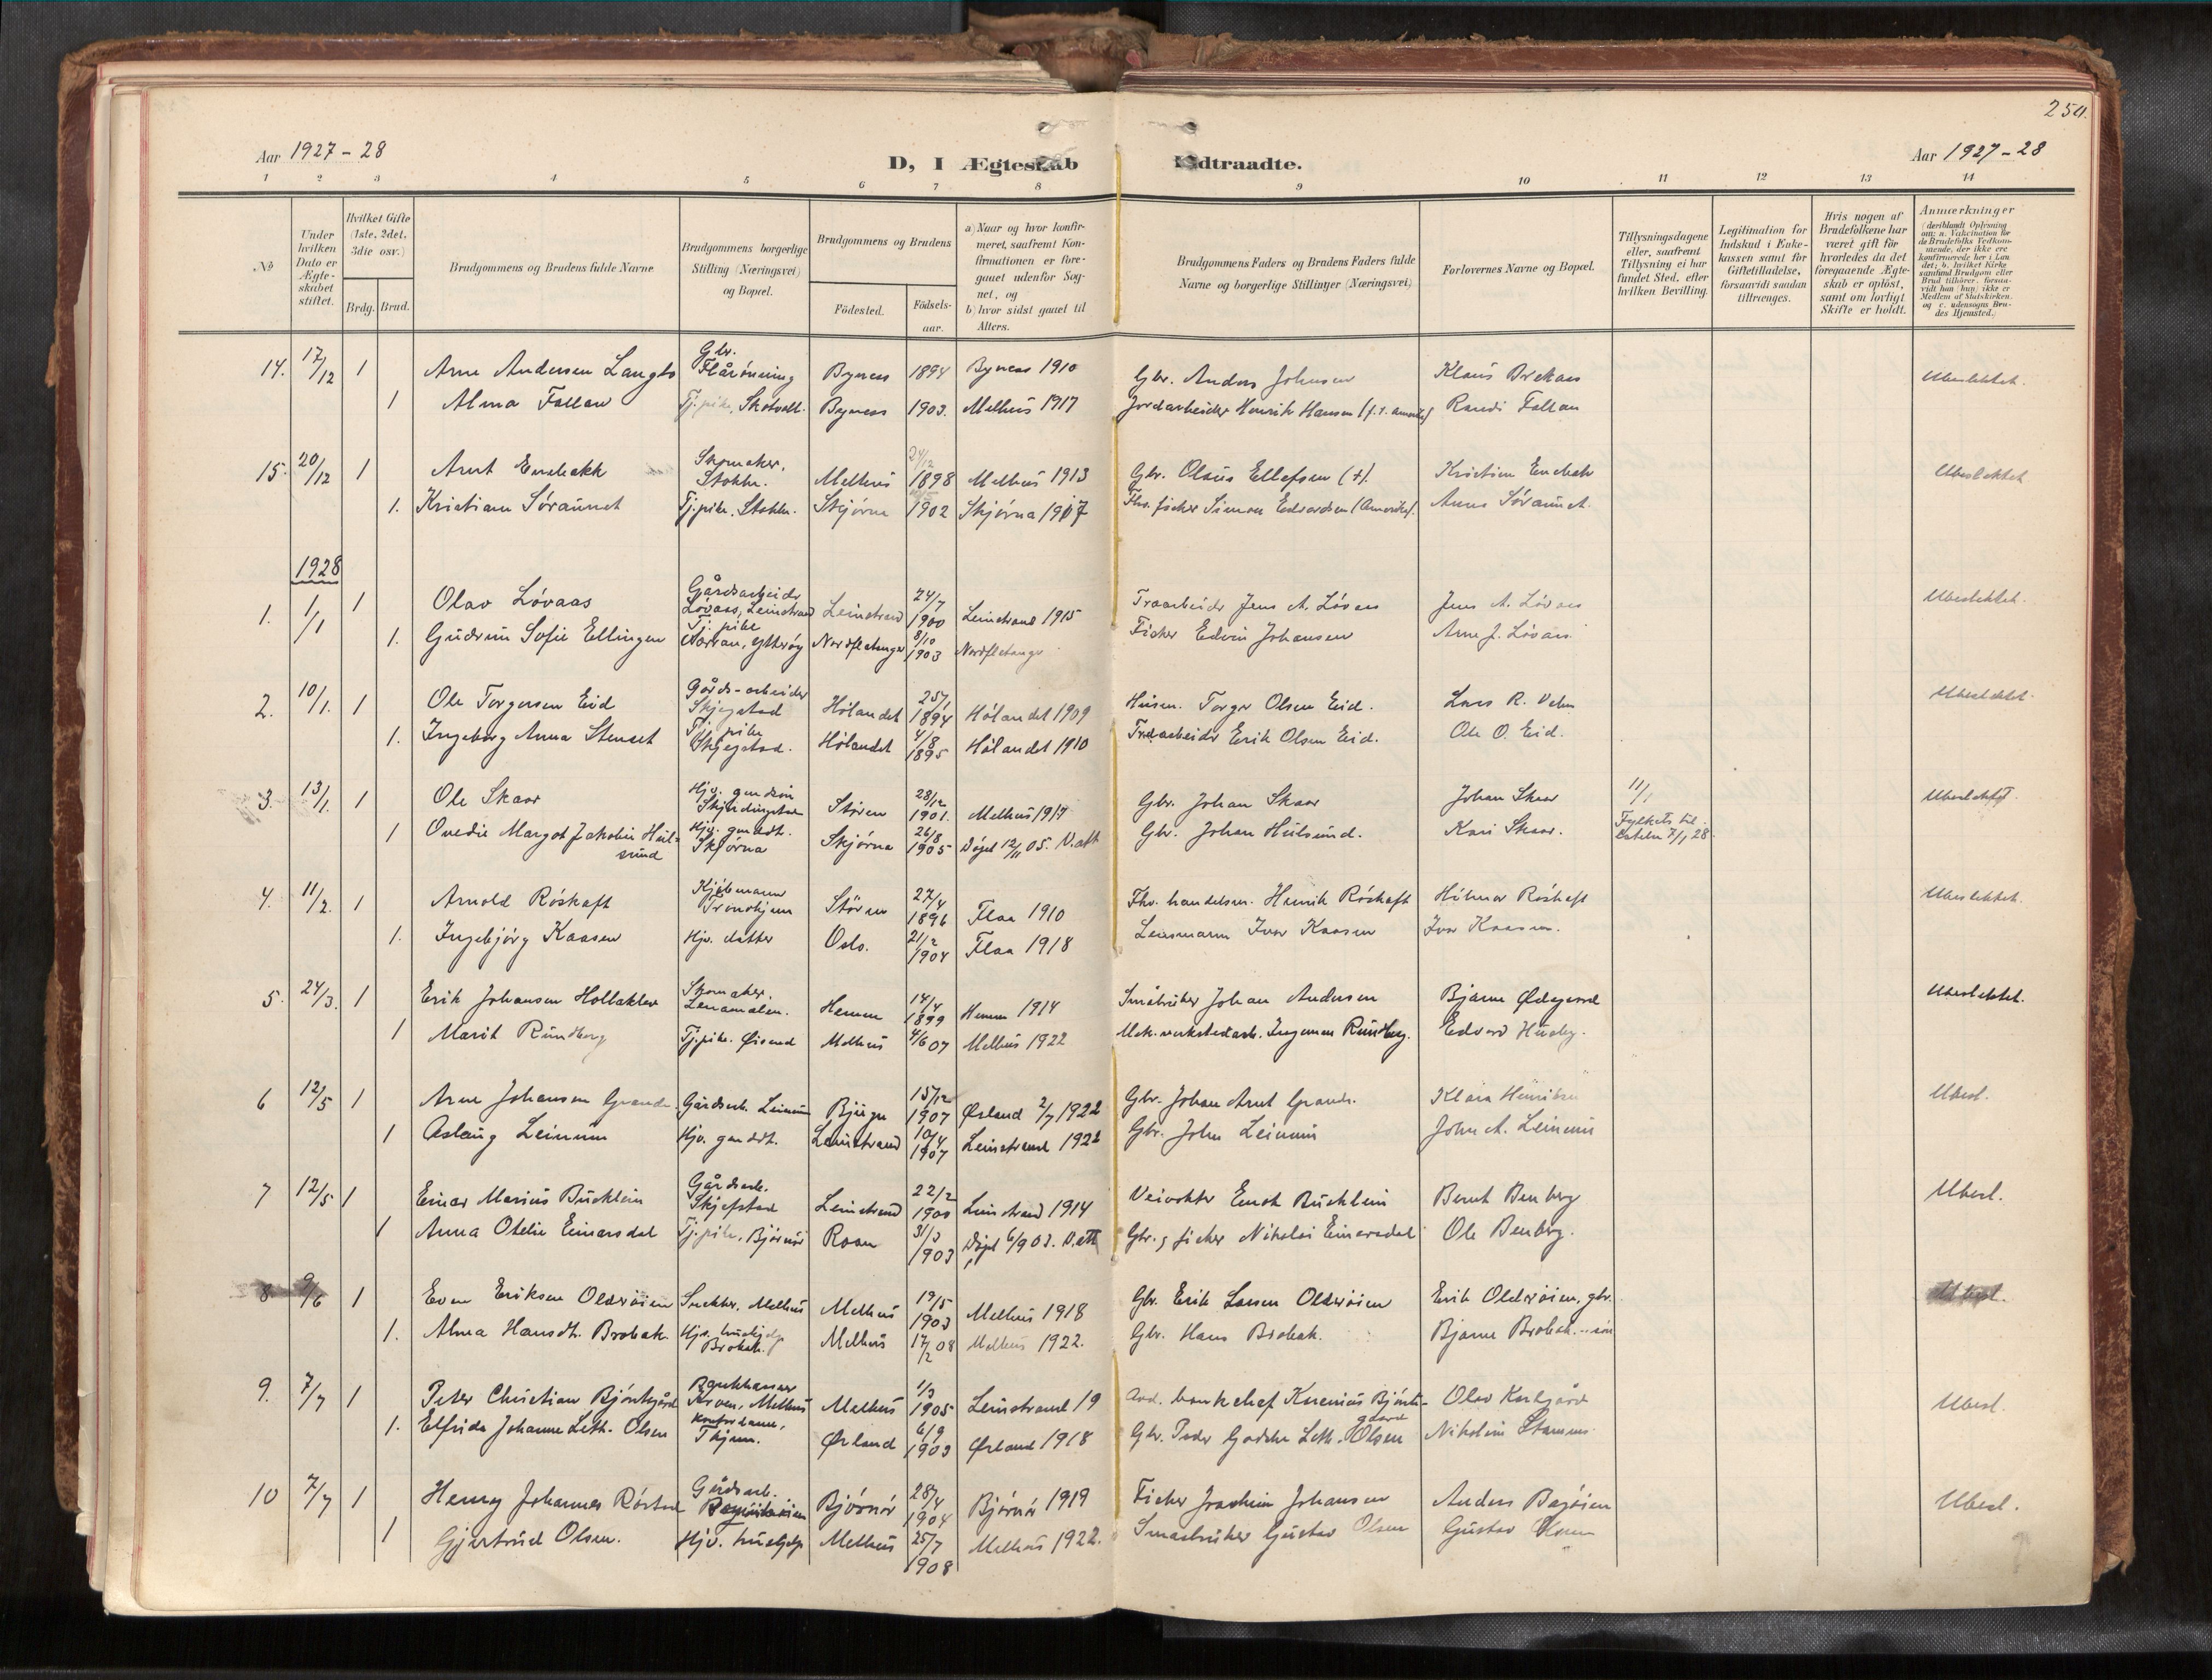 250.
Aar 1927-28
D, I Ægteskab Indtraadte.
Aar 1927-28
1 2 3 4 5 6 7 8 9 10 11 12 13 14
No
Under hvilken Dato er Ægteskabet stiftet.
Hvilket Gifte (1ste, 2det, 3die osv.)
Brdg. Brud.
Brudgommens og Brudens fulde Navne
Brudgommens borgerlige Stilling (Næringsvei) og Bopæl.
Brudgommens og Brudens
Födested.
Födsels-aar.
a) Naar og hvor konfir-
meret, saafremt Kon-
firmationen er fore-
gaaet udenfor Sog-
net, og
b) hvor sidst gaaet til
Alters.
Brudgommens Faders og Brudens Faders fulde
Navne og borgerlige Stillinger (Næringsvei)
Forlovernes Navne og Bopæl.
Tillysningsdagene
eller, saafremt
Tillysning ei har
fundet Sted, efter
hvilken Bevilling.
Legitimation for
Indskud i Enke-
kassen samt for
Giftetilladelse,
forsaavidt saadan
tiltrænges.
Hvis nogen af
Brudefolkene har
været gift för
hvorledes da det
foregaaende Ægte-
skab er oplöst,
samt om lovligt
Skifte er holdt.
Anmærkninger
(deriblandt Oplysning
om: a. Vakcination for
de Brudefolks Vedkom-
mende, der ikke ere
konfirmerede her i Lan-
det; b. hvilket Kirke-
samfund Brudgom eller
Brud tilhörer, forsaa-
vidt han (hun) ikke er
Medlem af Statskirken,
og c. udensogns Bru-
des Hjemsted.)
14. 17/12 1 Arne Andersen Langlo Gbr. Flårönning Byness 1894 Byness 1910 Gbr. Anders Johnsen Klaus Brekaas Ubeslektet.
1 Alma Fallan Tj.pike, Skotvoll. Byness 1903. Melhus 1917 Jordarbeider Henrik Hansen Randi Fallan
15. 20/12 1 Arnt Enebakk Skomaker, Stokke. Melhus 24/12 1898 Melhus 1913 Gbr. Olaus Ellefsen (+). Kristian Enebak Ubeslektet
1. Kristiane Söraunet Tj.pike, Stokke. Skjörna 1902 Skjörna 1917 Fhv. fisker Simon Edvardsen (Amerika). Anna Söraunet.
1928
1. 1/1 1 Olav Lövaas Gårdsarbeider Lövaas, Leinstrand Leinstrand 24/7 1900 Leinstrand 1915 Traarbeider Jens A. Lövaas Jens A. Lövaas Ubeslektet.
1. Gudrun Sofie Ellingsen Tj. pike Norvan, Ytteröy Nordflatanger 8/10 1903 Nordflatanger Fisker Edvin Johansen Arne J. Lövaas
2. 10/1. 1 Ole Torgersen Eid Gårds-arbeider Skjegstad Hölandet 25/1 1894 Hölandet 1909 Husm. Torger Olsen Eid. Lars R. Velm Ubeslektet.
1. Ingeborg Anna Stenset Tj. pike Skjegstad. Hölandet 4/8 1895 Hölandet 1910 Trearbeider Erik Olsen Eid. Ole O. Eid.
3. 13/1. 1 Ole Skaar Hjv. Stören 28/12 1901. Melhus 1917 Gbr. Johan Skaar Johan Skaar 11/1 Ubeslektet.
1 Ovedie Margot Jakobie Hulsund Hjv. gmddt. Skjörna Skjörna 26/8 1905 Döpt 12/11 05. V.att Gbr. Johan Hulsund. Kari Skaar. Fylkets til-
latelse 7/1 28
4. 11/2. 1 Arnold Röskaft Kjöbmann Trondhjem Stören 27/4 1896 Flaa 1910 Fhv. handelsm. Henrik Röskaft Hilmar Röskaft Ubeslektet.
1. Ingebjörg Kaasen Hjv. datter Oslo. 21/2 1904 Flaa 1918 Lensmann Ivar Kaasen Ivar Kaasen.
5. 24/3. 1 Erik Johansen Hollaklev Skomaker. Hemne 14/4 1899 Hemne 1914 Småbruker Johan Andersen Bjarne Ødegaard Ubeslektet.
1 Marit Rundberg Tj.pike. Øisand Melhus 4/6 07 Melhus 1922 Mek. verkstedarb. Ingeman Rundberg. Edvard Huseby.
6 12/5 1 Arne Johansen Grande. Gårdsarb. Leinum Bjugn 15/12 1907 Ørland 2/7 1922 Gbr. Johan Arnt Grande. Klara Henriksen Ubesl.
1 Aslaug Leinum Hjv. gmddt. Leinstrand 10/4 1907 Leinstrand 1922 Gbr. John Leinum John A. Leinum
7 12/5 1 Einar Marius Buchlein Gårdsarb. Skjefstad Leinstrand 22/2 1900 Leinstrand 1914 Veivokter Ernst Buchlein Bernt Benberg Ubesl.
1 Anna Otelie Einarsdal Tj.pike, Björnör Roan 31/3 1903 Döpt 6/9 03. V.att Gbr. & fisker Nikolai Einarsdal Ole Benberg.
8 9/6 1 Even Eriksen Olderöien Snekker, Melhus Melhus 19/5 1903 Melhus 1918 Gbr. Erik Larsen Olderöien Erik Olderöien, gbr. Ubesl.
1. Alma Hansdt. Brobak. Hjv. hushjelp Brobak. Melhus 17/2 08 Melhus 1922. Gbr. Hans Brobak. Bjarne Brobak. -- sön
9. 7/7 1 Peter Christian Bjöntegård Bankkasser Kroen, Melhus Melhus 1/3 1905 Leinstrand 19 Avd. bankchef Knenius Bjönte-
gaard Olav Kulgård Ubesl.
1. Elfrida Johanne Leth-Olsen Kontordame, Thjem. Ørland 6/9 1903 Ørland 1918 Gbr. Peder Godske Leth-Olsen Nikolai Stamnes
10 7/7 1 Henry Johannes Röstad Gårdsarb. Björnör 28/4 1904 Björnör 1919 Fisker Joachim Johansen Anders Bagöien Ubesl.
1 Gjertrud Olsen. Hjv. hushjelp Melhus 25/7 1908 Melhus 1922. Smaabruker Gustav Olsen Gustav Olsen